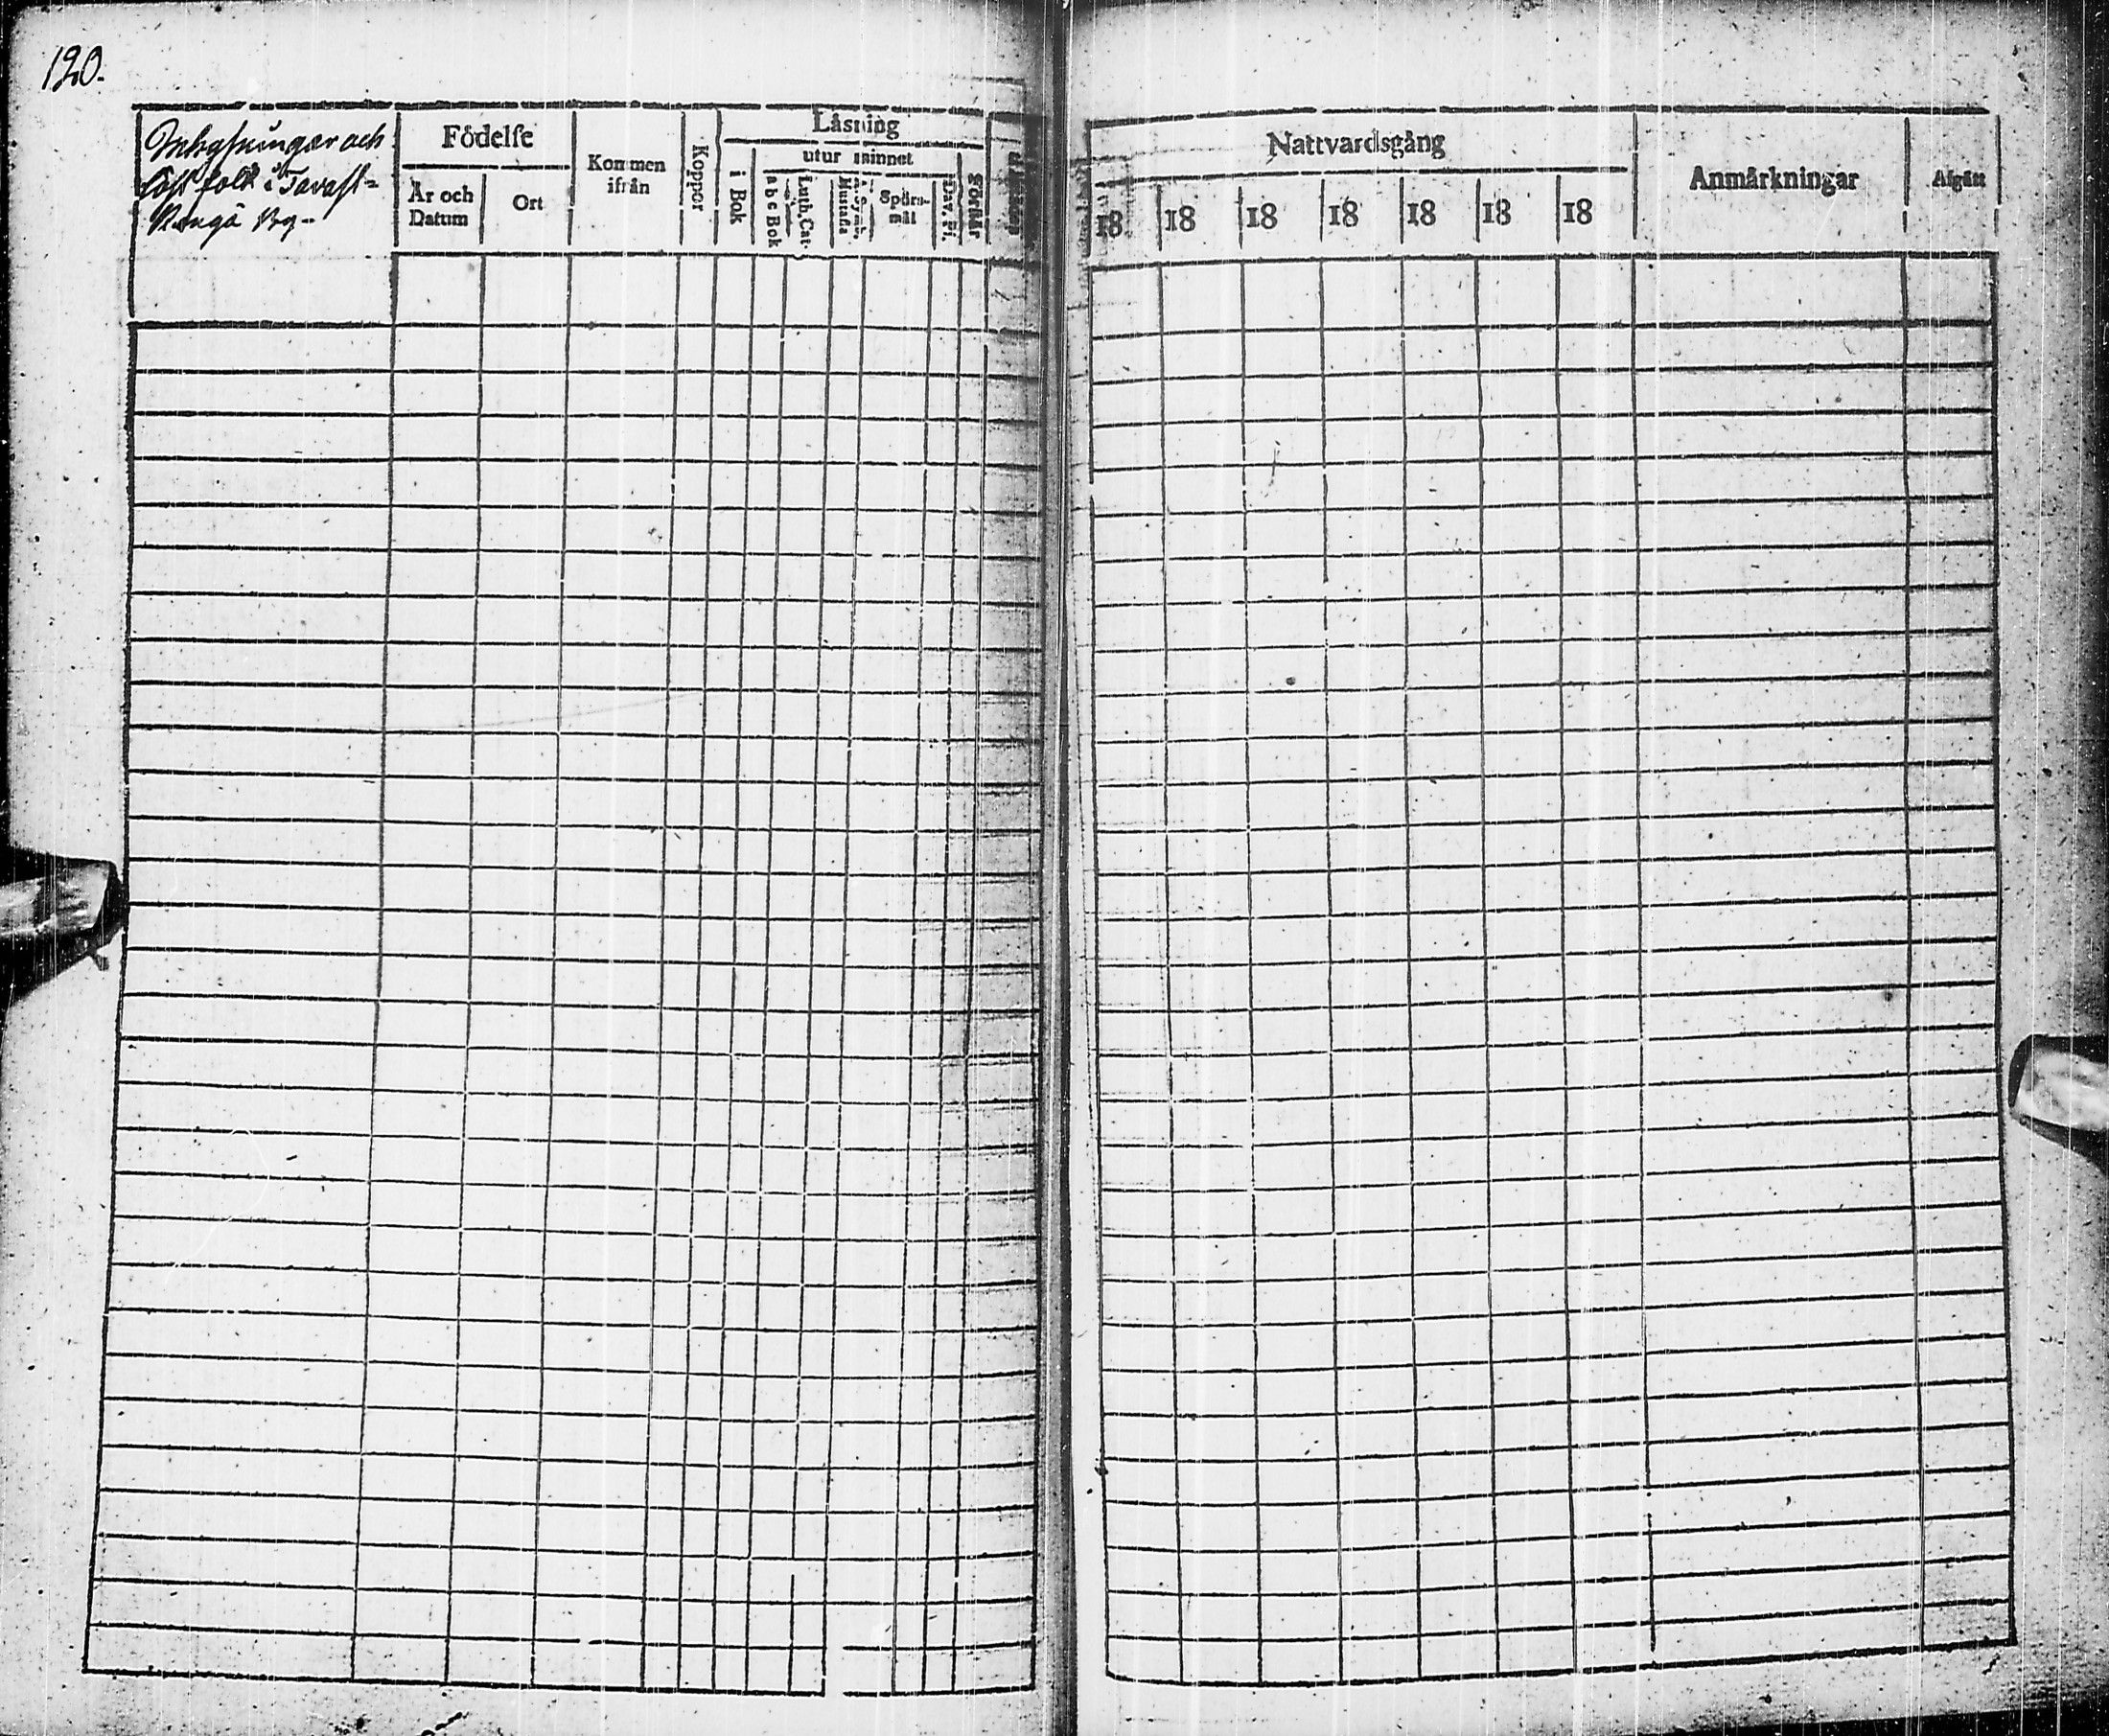 120.
Inhysningar och
löst folk i Tavast-
Kengå By-
Födelse
År och
Datum
Ort
Kommen
ifrån
Koppor
Läsning
i Bok
utur minnet
a b c Bok
Luth. Cat.
Hustafla
Spörs-
mål
Dav. Ps.
Förstår
Nattvardsgång
18
18
18
18
18
18
18
Anmärkningar
Afgått